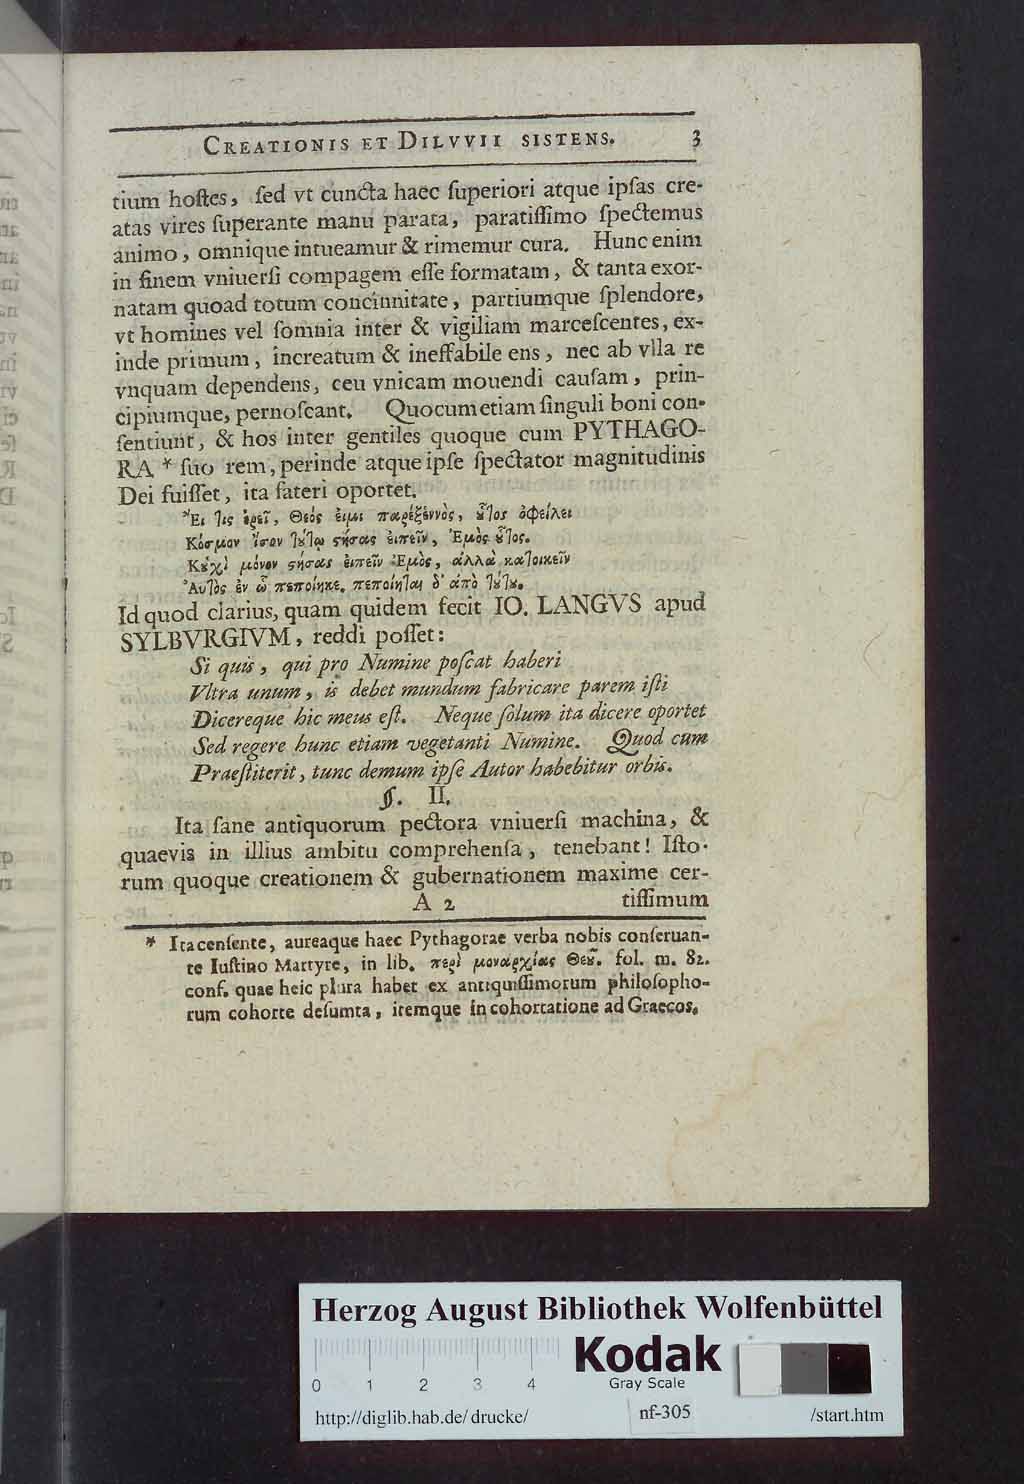 CREATIONIS ET DILVVII SISTENS. 3
tium hoſtes, ſed vt cuncta haec ſuperiori atque ipſas cre-
atas vires ſuperante manu parata, paratiſſimo ſpectemus
animo, omnique intueamur & rimemur cura. Hunc enim
in finem vniuerſi compagem eſſe formatam, & tanta exor-
natam quoad totum concinnitate, partiumque ſplendore,
vt homines vel ſomnia inter & vigiliam marceſcentes, ex-
inde primum, increatum & ineffabile ens, nec ab vlla re
vnquam dependens, ceu vnicam mouendi cauſam, prin-
cipiumque, pernoſcant. Quocum etiam ſinguli boni con-
ſentiunt, & hos inter gentiles quoque cum PYTHAGO-
RA * ſuo rem, perinde atque ipſe ſpectator magnitudinis
Dei fuiſſet, ita fateri oportet.
Ἔι τις ἐρεῖ, Θεός ἐιμι παρὲξ ἑνὸς, ȣ̃τος ὀφείλει
Κόσμον ἴσον τȣ́τῳ ςήσας ἐιπεῖν, Ἐμὸς ȣ̃τος.
Κȣχὶ μόνον ςήσας ἐιπεῖν Ἐμὸς, ἀλλὰ κατοικεῖν
Ἀυτὸς ἐν ᾧ πεποίηκε, πεποίηται δ' ἀπὸ τȣ́τȣ.
Id quod clarius, quam quidem fecit IO. LANGVS apud
SYLBVRGIVM, reddi poſſet:
Si quis, qui pro Numine poſcat haberi
Vltra unum, is debet mundum fabricare parem iſti
Dicereque hic meus eſt. Neque ſolum ita dicere oportet
Sed regere hunc etiam vegetanti Numine. Quod cum
Praeſtiterit, tunc demum ipſe Autor habebitur orbis.
§. II.
Ita ſane antiquorum pectora vniuerſi machina, &
quaevis in illius ambitu comprehenſa, tenebant! Iſto-
rum quoque creationem & gubernationem maxime cer-
A 2 tiſſimum
* Ita cenſente, aureaque haec Pythagorae verba nobis conſeruan-
te Iuſtino Martyre, in lib. περὶ μοναρχίας Θεȣ̃. fol. m. 82.
conf. quae heic plura habet ex antiquiſſimorum philoſopho-
rum cohorte deſumta, itemque in cohortatione ad Graecos.
Herzog August Bibliothek Wolfenbüttel
Kodak
Gray Scale
0 1 2 3 4
http://diglib.hab.de/drucke/ nf-305 /start.htm